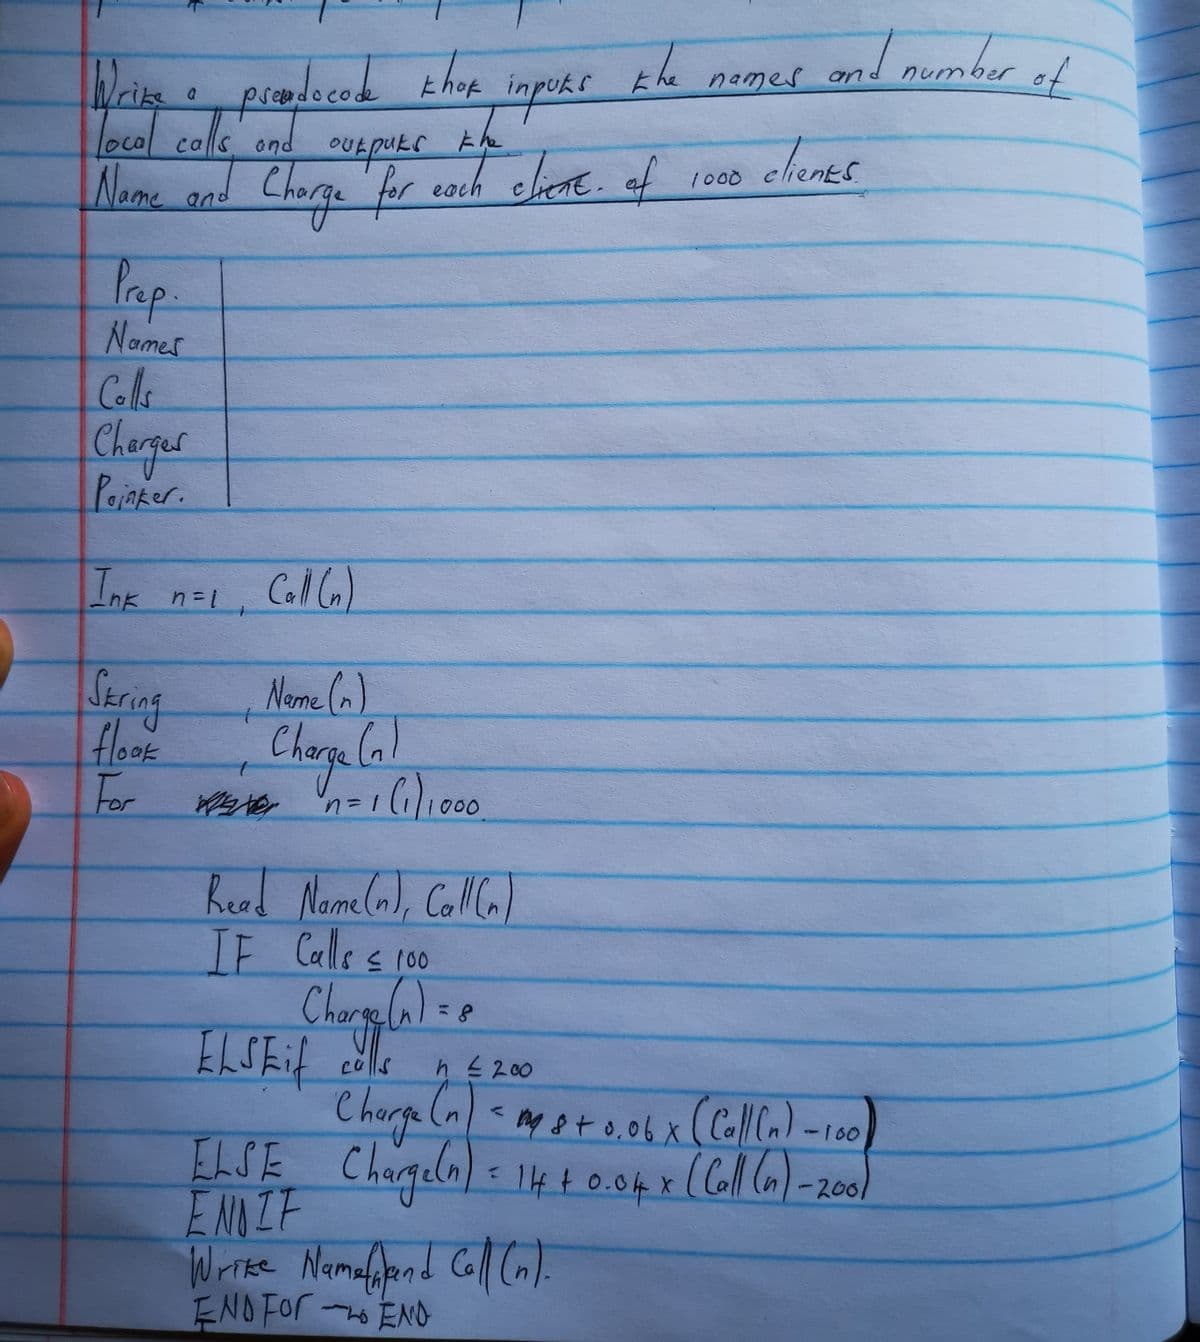 Write a pseudocode that inputs the names and number of
local calls and outputs the
Name and Charge for each client. of 1000 clients.
Prep.
Names
Calls
Charges
Pointer.
Int n=1, Call(n)
String , Name(n)
float , Charge(n)
For n=1(1)1000
Read Name(n), Call(n)
IF Calls ≤ 100
Charge(n) = 8
ELSEif calls n ≤ 200
Charge(n) = 8+0.06 x (Call(n) -100)
ELSE Charge(n) = 14 + 0.04 x (Call(n) -200)
ENDIF
Write Name(n) and Call(n).
END FOR → END